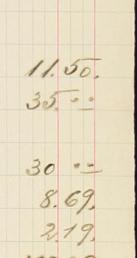 11.50.
35.--
30 --
8.69.
2.19.